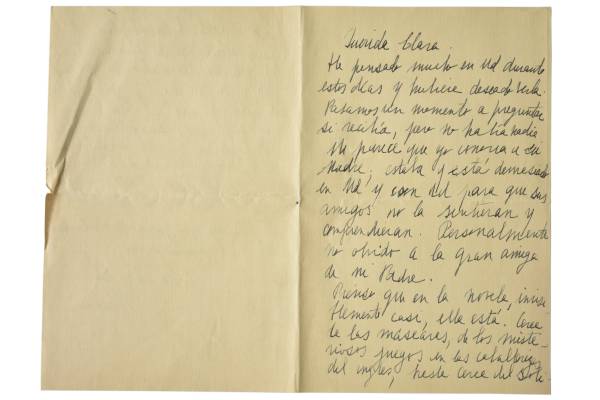 Querida Clara.
He pensado mucho en Ud durante
estos días y hubiera deseado verla.
Pasamos un momento a preguntar
si recibía, pero no había nadie
Me parece que yo conocía a su
Madre; estaba y está demasiado
en Ud y con Ud para que sus
amigos no la sintieran y
comprendieran. Personalmente
no olvido a la gran amiga
de mi Padre.
Pienso que en la novela, invisi
blemente casi, ella está. Cerca
de las máscaras, de los miste-
riosos juegos en las caballerizas
del inglés, hasta cerca del